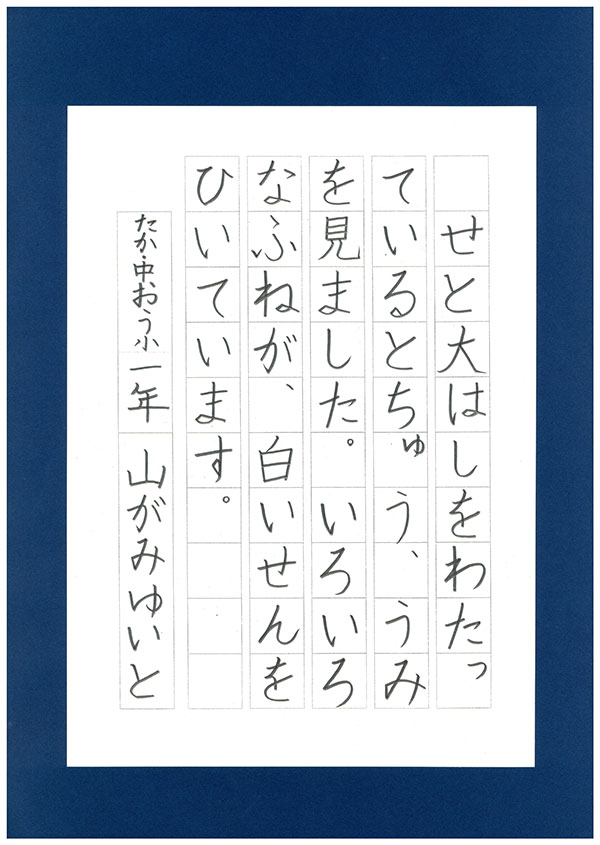 せと大はしをわたっ
ているとちゅう、うみ
を見ました。いろいろ
なふねが、白いせんを
ひいています。
たか・中おう小一年 山がみゆいと